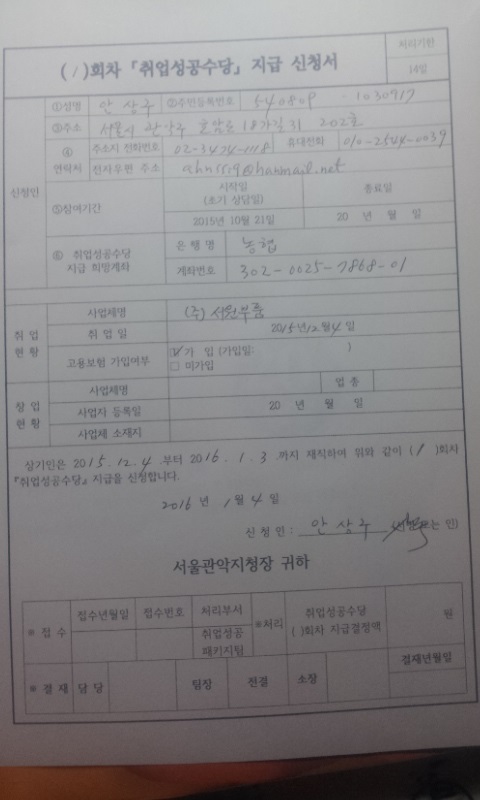 (1)회차 「취업성공수당」 지급 신청서
처리기한
14일
신청인
①성명 안상구 ②주민등록번호 540809 - 1030917
③주소 서울시 관악구 호암로 18가길 31 202호
④ 연락처
주소지 전화번호 02-3474-1118 휴대전화 010-2544-0039
전자우편 주소 ahn5519@hanmail.net
⑤참여기간
시작일 (초기 상담일) 종료일
2015년 10월 21일 20 년 월 일
⑥ 취업성공수당 지급 희망계좌
은 행 명 농협
계좌번호 302-0025-7868-01
취 업 현 황
사업체명 (주)서원부품
취 업 일 2015년 12월 4일
고용보험 가입여부 ☑ 가 입 (가입일: )
□ 미가입
창 업 현 황
사업체명 업 종
사업자 등록일 20 년 월 일
사업체 소재지
상기인은 2015. 12. 4 부터 2016. 1. 3 까지 재직하며 위와 같이 (1)회차
『취업성공수당』 지급을 신청합니다.
2016 년 1 월 4 일
신 청 인 : 안 상 구 는 인)
서울관악지청장 귀하
※ 접 수 접수년월일 접수번호 처리부서 ※처리 취업성공수당 ( )회차 지급결정액 원
취업성공 패키지팀
결재년월일
※ 결 재 담 당 팀장 전결 소장